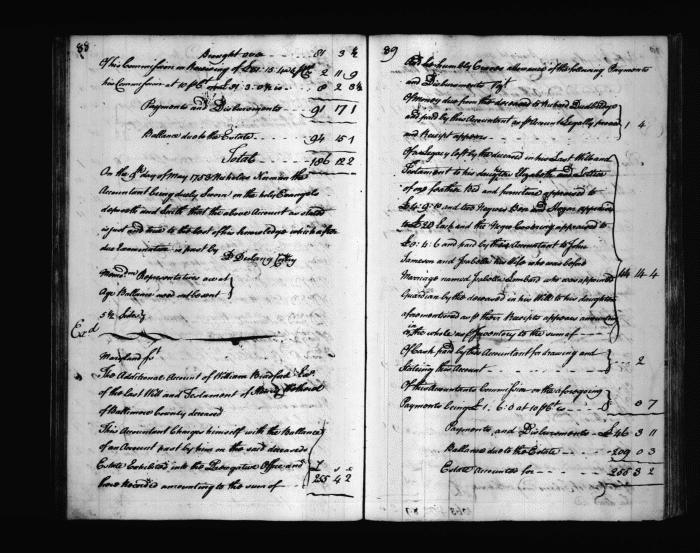 88
Brought over 81 3 ½
Of his Commission on
his Commission at 10 pCt
Payments and Disbursements 91 17 1
Ballance due to the Estate 94 15 1
Total 186 12 2
On the day of May 1758 Nicholas Norman the
Accountant being duely Sworn on the holy Evangels
deposeth and Saith that the above Account as stated
is just and true to the best of his knowledge which after
due Examination is past by
Memdm Representatives are at
Age Ballance need not be sent
5½ Sides
Exd
Maryland sc
The Additional Account of William Bradford Exr.
of the Last Will and Testament of
of Baltimore County deceased
This Accountant Charges himself with the Ballance
of an Account past by him on the said deceaseds
Estate Exhibited into the Prerogative Office and
there Recorded amounting to the sum of 255 4 2
89
And he humbly Craves allowance of the following Payments
and Disbursements Vizt
Of Money due from the deceased to
and paid by this Accountant as p Account Legally proved
and Receipt appears 1 4
Of a Legacy left by the deceased in his Last Will and
Testament to his daughter Elizabeth
of one feather Bed and furniture appraised to
and two Negroes appraised
to £20 Each and the Negro appraised to
£0:4:6 and paid by this Accountant to John
Jameson and Isabella his Wife who was before
Marriage named Isabella who was appointed
Guardian by the deceased in his Will to his daughter
aforementioned as p their Receipts appears amounting
in the whole as p Inventory to the sum of 44 14 4
Of Cash paid by this Accountant for drawing and
Stateing this Account 2
Of this Accountants Commission on the aforegoing
Payments being £1:6:0 at 10 pCt is 0 7
Payments and Disbursements £46 3 11
Ballance due to the Estate 209 0 3
Estate Accounted for 255 3 2